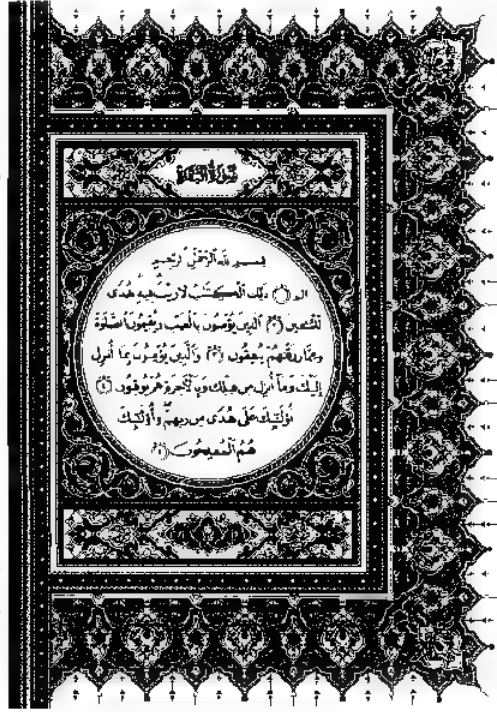 سورة البقرة
بسم الله الرحمن الرحيم
الم ١ ذلك الكتب لا ريب فيه هدى
للمتقين ٢ الذين يؤمنون بالغيب ويقيمون الصلوة
ومما رزقنهم ينفقون ٣ والذين يؤمنون بما أنزل
إليك وما أنزل من قبلك وبالأخرة هم يوقنون ٤
أولئك على هدى من ربهم وأولئك
هم المفلحون ٥